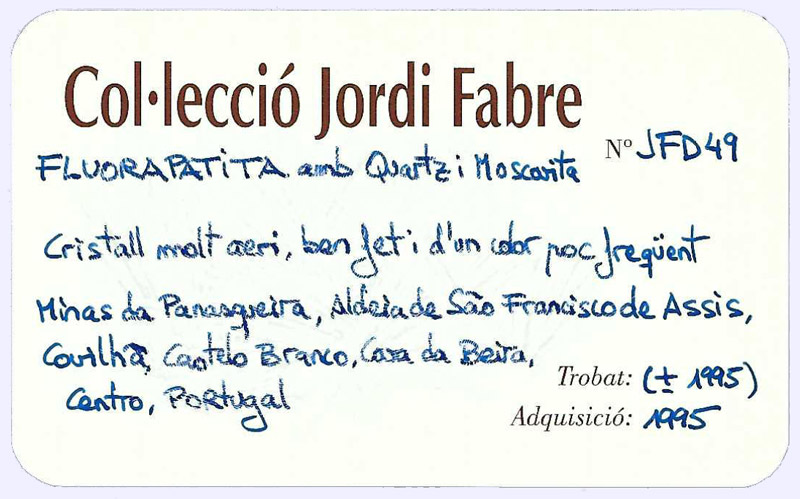 Col·lecció Jordi Fabre
Nº JFD49
FLUORAPATITA amb Quartz i Moscovita
Cristall molt aeri, ben fet i d'un color poc freqüent
Minas da Panasqueira, Aldeia de São Francisco de Assis,
Covilhã, Castelo Branco, Cova da Beira,
Centro, Portugal
Trobat: (± 1995)
Adquisició: 1995